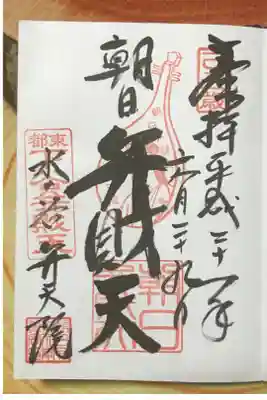 奉拝 平成二十一年
六月二十九日
朝日
弁財天
東都
水の谷弁天院